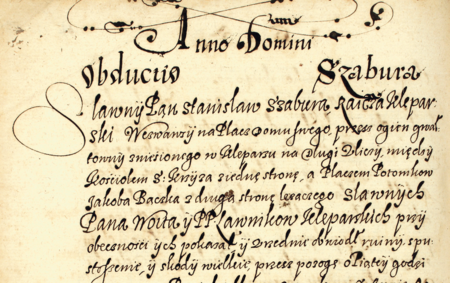 Anno Domini
Obductio Szabura
Sławny Pan Stanisław Szabura Raicza Klepar-
ski Wezwawszy na Plac Domu swego, przez ogień gwał
towny zniesionego w Kleparzu na Długi Ulicy, między
Kościołem S: Krzyża z iedne stronę, a Placzem Potomkow
Jakoba Baczka z drugą stronę leżącego Sławnych
Pana Woita y PP Ławnikow Kleparskich przy
obecności ych pokazał y Urzednie obwiodł ruiny, spu-
stoszenie, y skody wielkie, przez pozogę o Piątey godzi